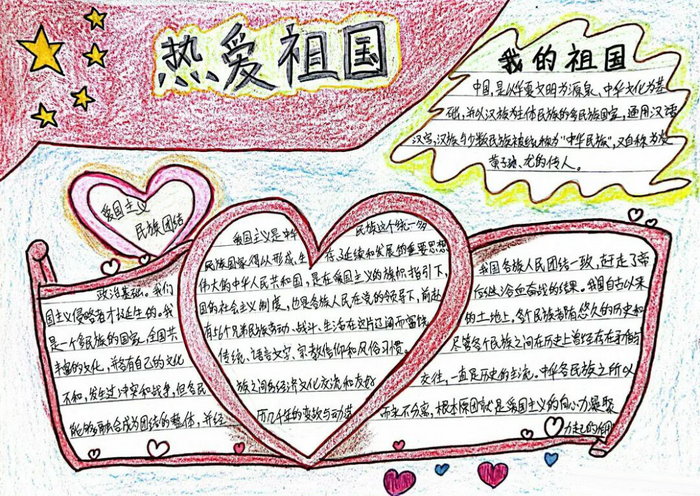 热爱祖国
我的祖国
中国,是以华夏文明为源泉、中华文化为基
础,并以汉族为主体民族的多民族国家,通用汉语
汉字,汉族与少数民族被统称为“中华民族”,又自称为炎
黄子孙、龙的传人。
爱国主义
民族团结
政治基础。我们
国主义侵略者才诞生的。我
是一个多民族的国家,全国共
丰富的文化,并各有自己的文化
不和,发生过冲突和战争,但各民
能够融合成为团结的整体,并经
爱国主义是中华
民族这个统一多
民族国家得以形成、生
存、延续和发展的重要思想
伟大的中华人民共和国,是在爱国主义的旗帜指引下,
国的社会主义制度,也是各族人民在党的领导下,前赴
有56个兄弟民族劳动、战斗、生活在这片辽阔而富饶
传统、语言文字、宗教信仰和风俗习惯。
族之间的经济文化交流和友好
历几千年的变故与动荡
我国各族人民团结一致,赶走了帝
后继浴血奋战的结果。我国自古以来
的土地上,各个民族都有悠久的历史和
尽管各个民族之间在历史上曾经存在矛盾与
交往,一直是历史的主流。中华各民族之所以
而未不分离,根本原因就是爱国主义的向心力凝聚
力起了的作用